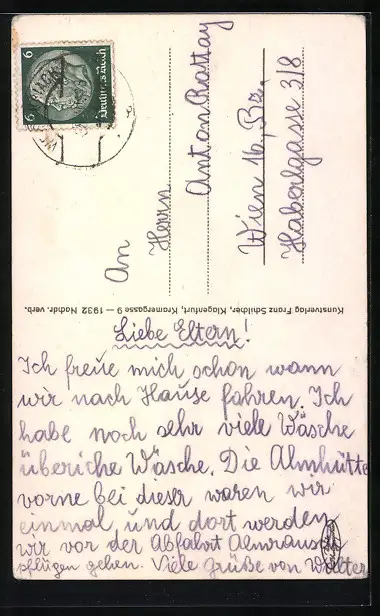 6 Deutsches Reich 6
An
Herrn
Anton Rattay
Wien 16. Bz.
Haberlgasse 3/8
Kunstverlag Franz Schilcher, Klagenfurt, Kramergasse 9 — 1932 Nachdr. verb.
Liebe Eltern!
Ich freue mich schon wann
wir nach Hause fahren. Ich
habe noch sehr viele Wäsche
überiche Wäsche. Die Almhütte
vorne bei dieser waren wir
einmal und dort werden
wir vor der Abfahrt Almrausch
pflügen gehen. Viele Grüße von Walter